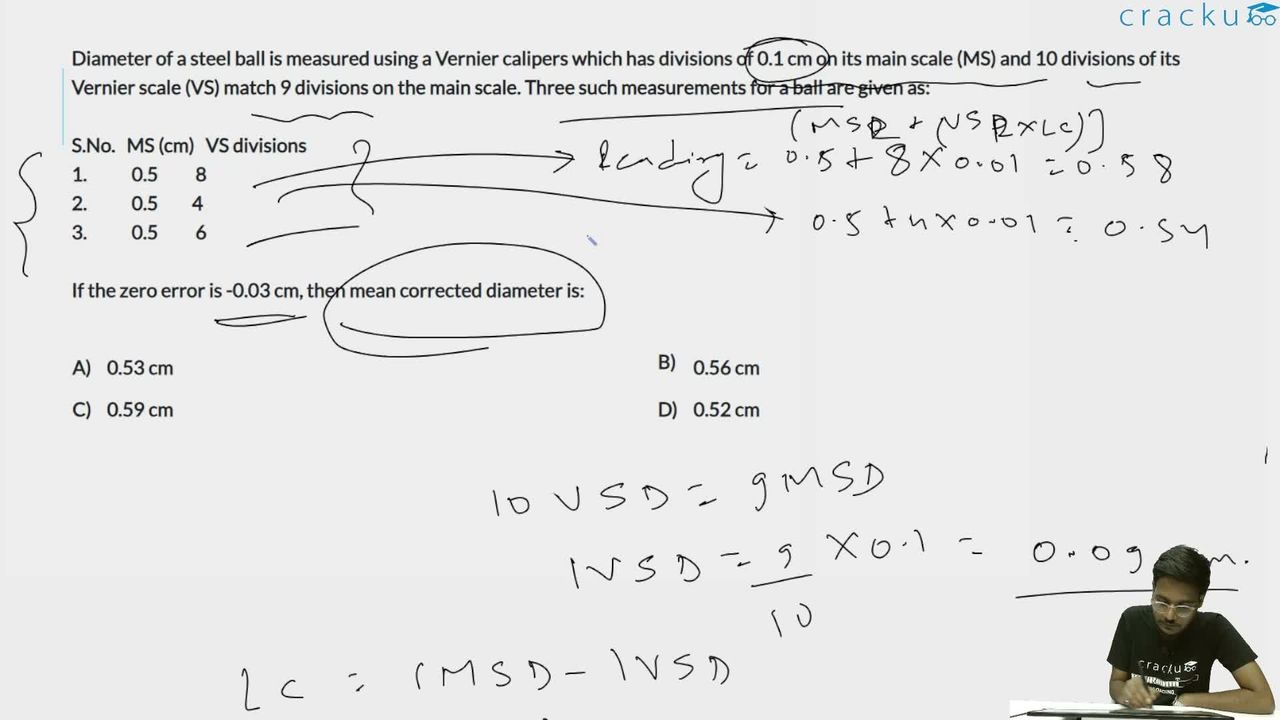 cracku
Diameter of a steel ball is measured using a Vernier calipers which has divisions of 0.1 cm on its main scale (MS) and 10 divisions of its
Vernier scale (VS) match 9 divisions on the main scale. Three such measurements for a ball are given as:
(MSR + (VSR×LC)]
S.No. MS (cm) VS divisions
Reading = 0.5 + 8 × 0.01 = 0.58
1. 0.5 8
2. 0.5 4
0.5 + 4 × 0.01 = 0.54
3. 0.5 6
If the zero error is -0.03 cm, then mean corrected diameter is:
A) 0.53 cm
B) 0.56 cm
C) 0.59 cm
D) 0.52 cm
10 VSD = 9MSD
1VSD = 9 × 0.1 = 0.09
10
LC = 1MSD - 1VSD
cracku